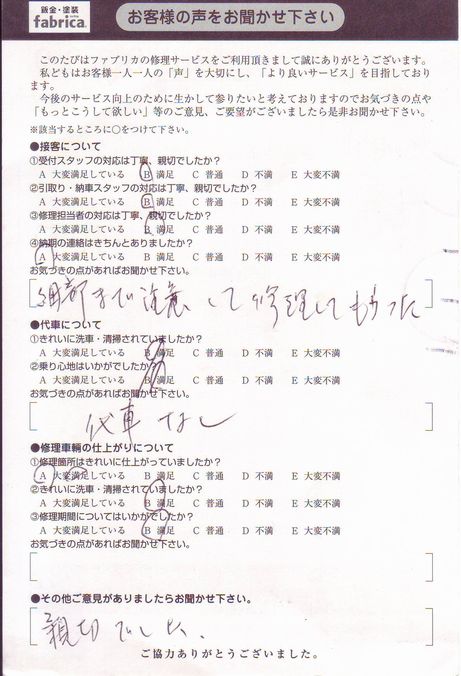 鈑金・塗装
fabrica.
お客様の声をお聞かせ下さい
このたびはファブリカの修理サービスをご利用頂きまして誠にありがとうございます。
私どもはお客様一人一人の「声」を大切にし、「より良いサービス」を目指しており
ます。
今後のサービス向上のために生かして参りたいと考えておりますのでお気づきの点や
「もっとこうして欲しい」等のご意見、ご要望がございましたら是非お聞かせ下さい。
※該当するところに○をつけて下さい。
●接客について
①受付スタッフの対応は丁寧、親切でしたか？
A 大変満足している B 満足 C 普通 D 不満 E 大変不満
②引取り・納車スタッフの対応は丁寧、親切でしたか？
A 大変満足している B 満足 C 普通 D 不満 E 大変不満
③修理担当者の対応は丁寧、親切でしたか？
A 大変満足している B 満足 C 普通 D 不満 E 大変不満
④納期の連絡はきちんとありましたか？
A 大変満足している B 満足 C 普通 D 不満 E 大変不満
お気づきの点があればお聞かせ下さい。
細部まで注意して修理してもらった
●代車について
①きれいに洗車・清掃されていましたか？
A 大変満足している B 満足 C 普通 D 不満 E 大変不満
②乗り心地はいかがでしたか？
A 大変満足している B 満足 C 普通 D 不満 E 大変不満
お気づきの点があればお聞かせ下さい。
代車なし
●修理車輌の仕上がりについて
①修理箇所はきれいに仕上がっていましたか？
A 大変満足している B 満足 C 普通 D 不満 E 大変不満
②きれいに洗車・清掃されていましたか？
A 大変満足している B 満足 C 普通 D 不満 E 大変不満
③修理期間についてはいかがでしたか？
A 大変満足している B 満足 C 普通 D 不満 E 大変不満
お気づきの点があればお聞かせ下さい。
●その他ご意見がありましたらお聞かせ下さい。
親切でした、
ご協力ありがとうございました。